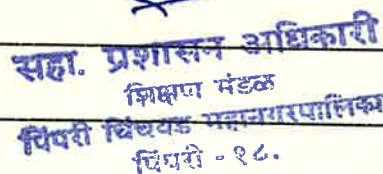 सहा. प्रशासन अधिकारी
शिक्षण मंडळ
पिंपरी चिंचवड महानगरपालिका
पिंपरी - १८.